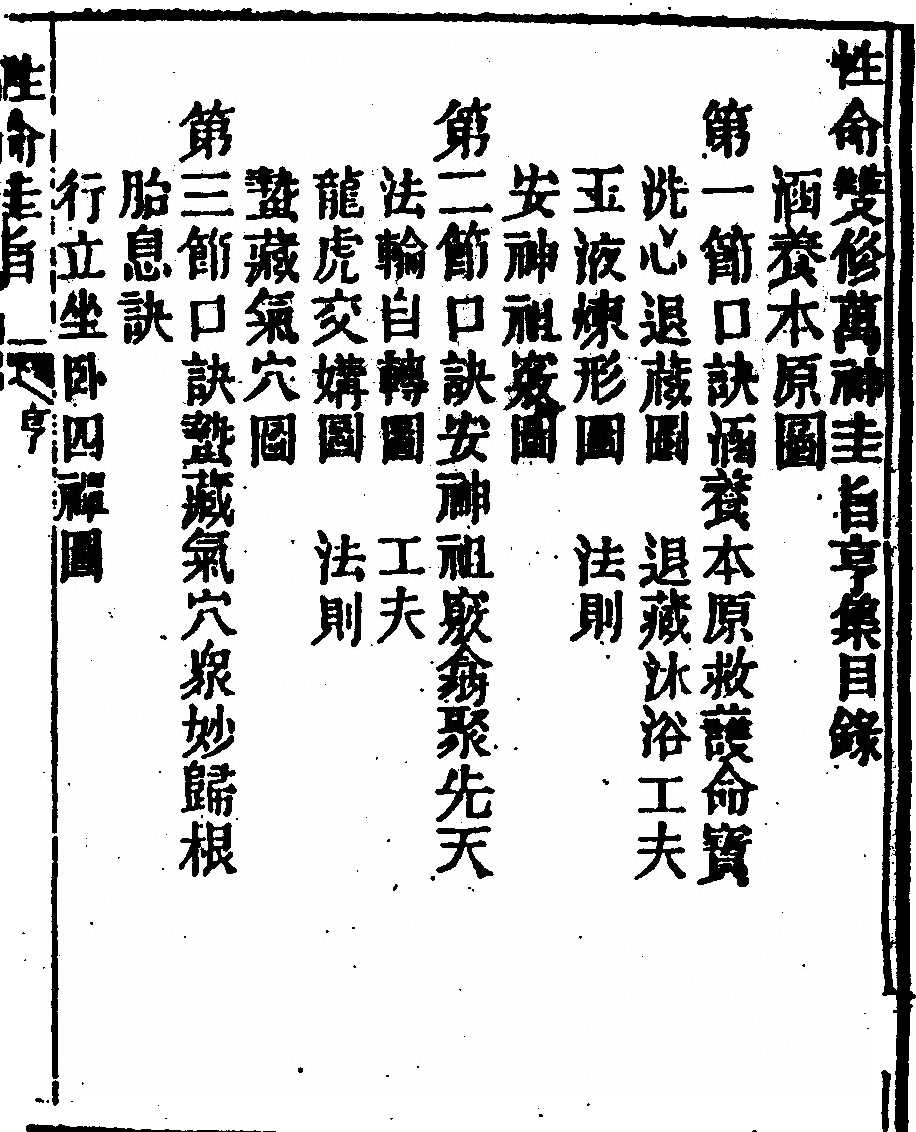 性命雙修萬神圭旨亨集目錄
涵養本原圖
第一節口訣涵養本原救護命寶
洗心退藏圖 退藏沐浴工夫
玉液煉形圖 法則
安神祖竅圖
第二節口訣安神祖竅翕聚先天
法輪自轉圖 工夫
龍虎交媾圖 法則
蟄藏氣穴圖
第三節口訣蟄藏氣穴衆妙歸根
胎息訣
行立坐卧四禪圖
性命圭旨 亨